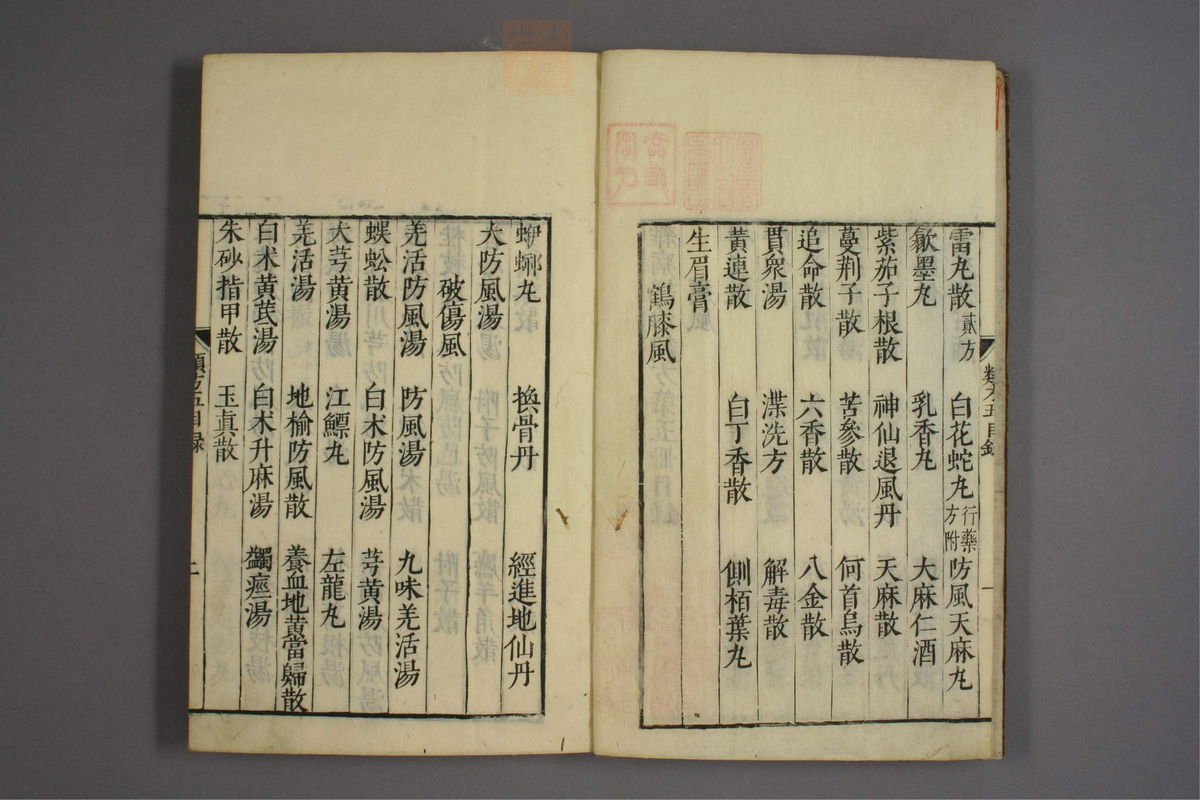 雷丸散貳方 白花蛇丸行藥方附 防風天麻丸
歙墨丸 乳香丸 大麻仁酒
紫茄子根散 神仙退風丹 天麻散
蔓荆子散 苦參散 何首烏散
追命散 六香散 八金散
貫衆湯 渫洗方 解毒散
黄連散 白丁香散 側栢葉丸
生眉膏
鶴膝風
類方五目錄
一
蝍丸 換骨丹 經進地仙丹
大防風湯
破傷風
羌活防風湯 防風湯 九味羌活湯
蜈蚣散 白朮防風湯 芎黄湯
大芎黄湯 江鰾丸 左龍丸
羌活湯 地榆防風散 養血地黄當歸散
白朮黄芪湯 白朮升麻湯 蠲痙湯
朱砂指甲散 玉真散
類方五目録
二